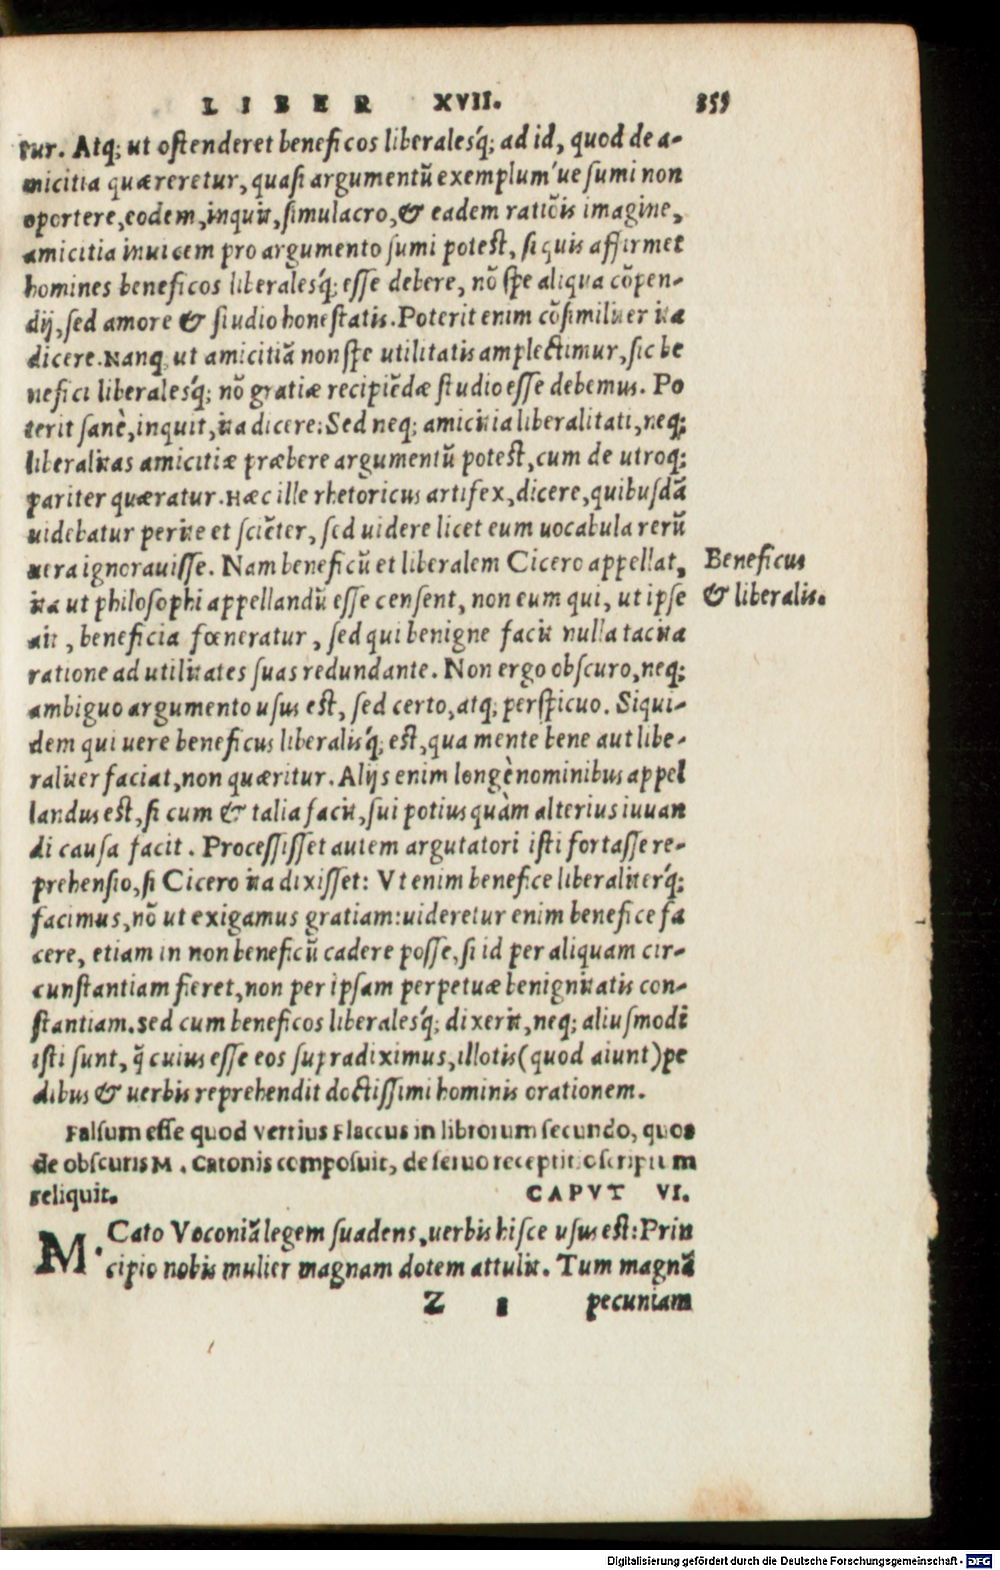 LIBER XVII. 353
tur. Atq; ut ostenderet beneficos liberalesq́; ad id, quod de a-
micitia quæreretur, quasi argumentũ exemplum´ue sumi non
oportere, eodem, inquit, simulacro, & eadem ratiõis imagine,
amicitia inuicem pro argumento sumi potest, si quis affirmet
homines beneficos liberalesq́; esse debere, nõ spe aliqua cõpen-
dij, sed amore & studio honestatis. Poterit enim cõsimiliter ita
dicere. Nanq; ut amicitiã non spe utilitatis amplectimur, sic be
nefici liberalesq́; nõ gratiæ recipiẽdæ studio esse debemus. Po
terit sanè, inquit, ita dicere: Sed neq; amicitia liberalitati, neq;
liberalitas amicitiæ præbere argumentũ potest, cum de utroq;
pariter quæratur. Hæc ille rhetoricus artifex, dicere, quibusdã
uidebatur perite et sciẽter, sed uidere licet eum uocabula rerũ
uera ignorauisse. Nam beneficũ et liberalem Cicero appellat,
ita ut philosophi appellandũ esse censent, non eum qui, ut ipse
ait, beneficia fœneratur, sed qui benigne facit nulla tacita
ratione ad utilitates suas redundante. Non ergo obscuro, neq;
ambiguo argumento usus est, sed certo, atq; perspicuo. Siqui-
dem qui uere beneficus liberalisq́; est, qua mente bene aut libe-
raliter faciat, non quæritur. Alijs enim longè nominibus appel
landus est, si cum & talia facit, sui potius quàm alterius iuuan
di causa facit. Processisset autem argutatori isti fortasse re-
prehensio, si Cicero ita dixisset: Vt enim benefice liberaliterq́;
facimus, nõ ut exigamus gratiam: uideretur enim benefice fa
cere, etiam in non beneficũ cadere posse, si id per aliquam cir-
cunstantiam fieret, non per ipsam perpetuæ benignitatis con-
stantiam. Sed cum beneficos liberalesq́; dixerit, neq; aliusmodi
isti sunt, q̃ cuius esse eos supra diximus, illotis (quod aiunt) pe
dibus & uerbis reprehendit doctissimi hominis orationem.
Beneficus
& liberalis.
Falsum esse quod Verrius Flaccus in librorum secundo, quos
de obscuris M. Catonis composuit, de seruo recepticio scriptum
reliquit. CAPVT VI.
M. Cato Voconiã legem suadens, uerbis hisce usus est: Prin
cipio nobis mulier magnam dotem attulit. Tum magnã
Z 1 pecuniam
Digitalisierung gefördert durch die Deutsche Forschungsgemeinschaft - DFG